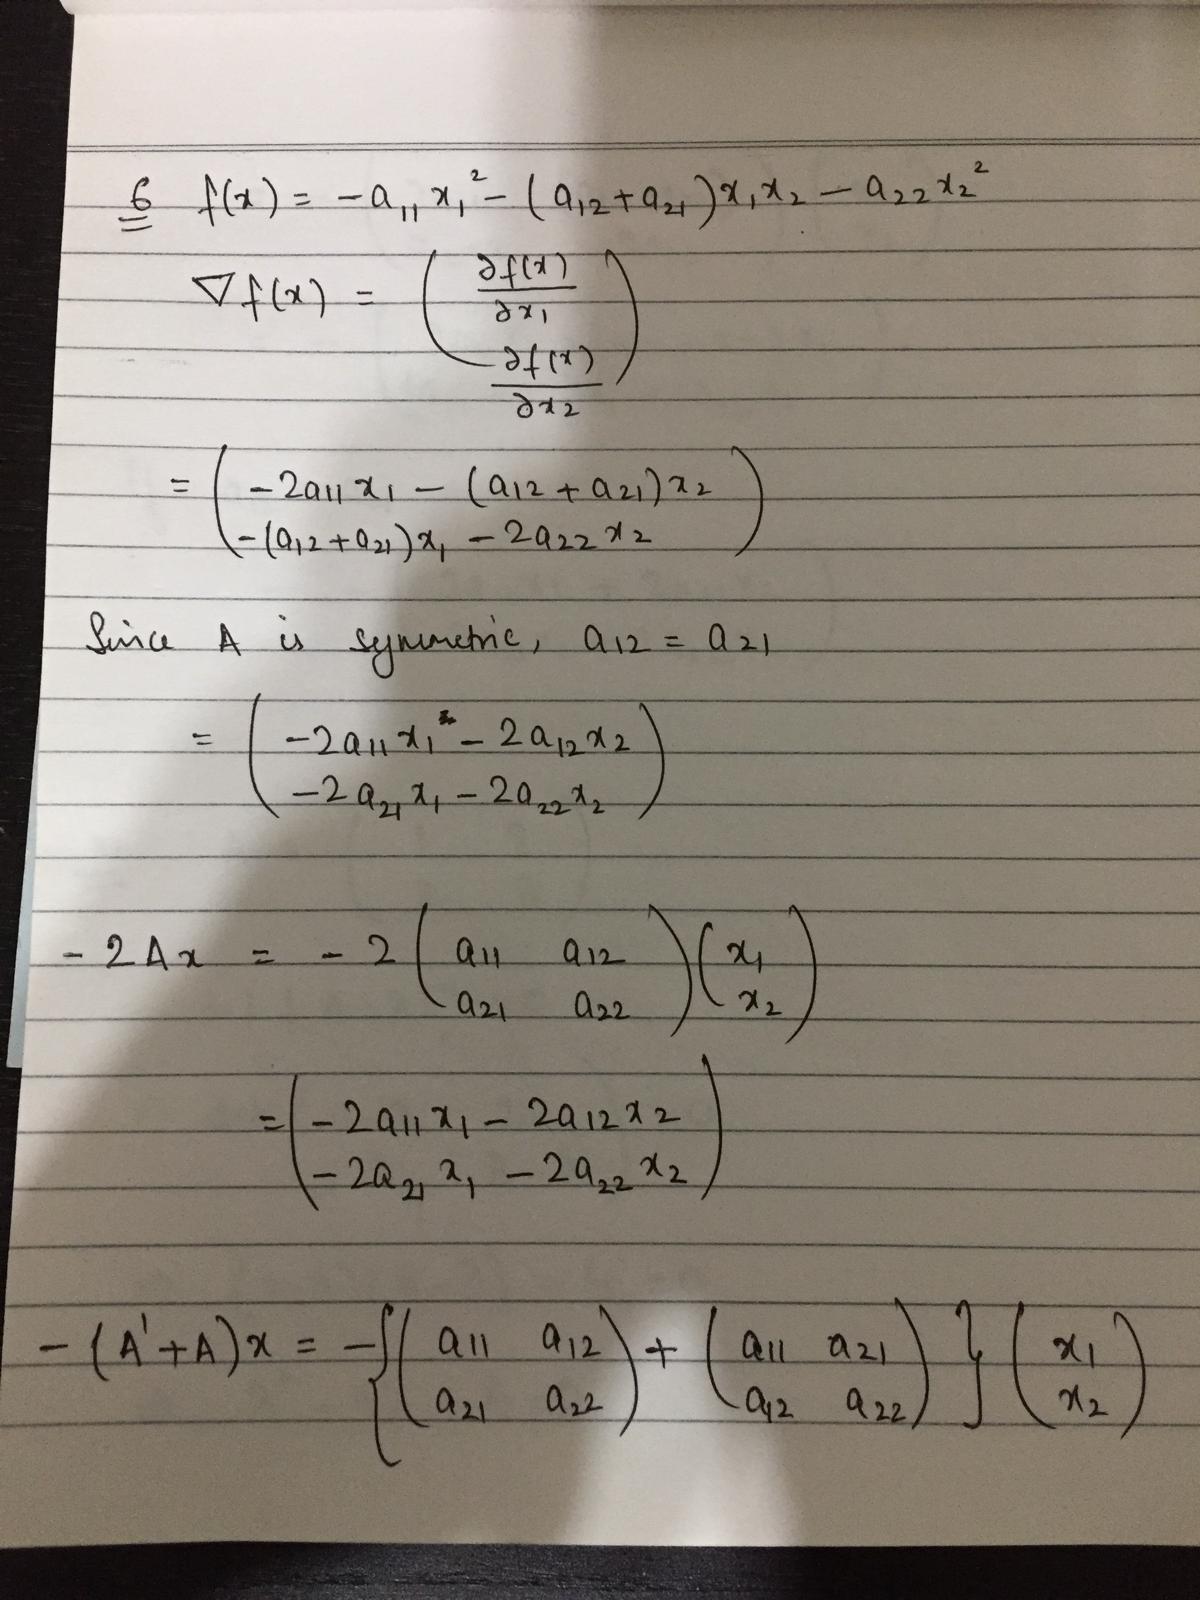 6 f(x) = -a₁₁x₁² - (a₁₂+a₂₁)x₁x₂ - a₂₂x₂²
∇f(x) = ( ∂f(x)/∂x₁
∂f(x)/∂x₂ )
= ( -2a₁₁x₁ - (a₁₂+a₂₁)x₂
-(a₁₂+a₂₁)x₁ - 2a₂₂x₂ )
Since A is symmetric, a₁₂ = a₂₁
= ( -2a₁₁x₁ - 2a₁₂x₂
-2a₂₁x₁ - 2a₂₂x₂ )
-2Ax = -2 ( a₁₁ a₁₂ ) ( x₁
a₂₁ a₂₂ x₂ )
= ( -2a₁₁x₁ - 2a₁₂x₂
-2a₂₁x₁ - 2a₂₂x₂ )
-(A'+A)x = -{ ( a₁₁ a₁₂ ) + ( a₁₁ a₂₁ ) } ( x₁
a₂₁ a₂₂ a₁₂ a₂₂ x₂ )